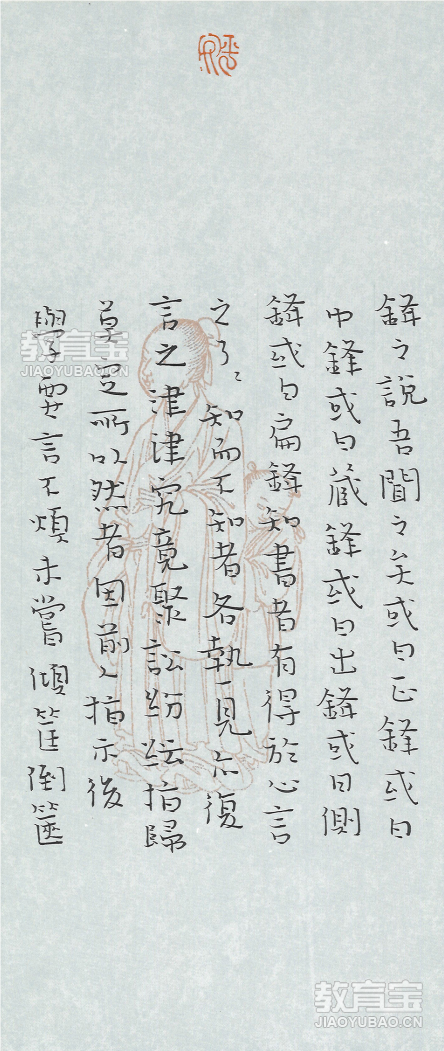 鋒之說吾聞之矣或曰正鋒或曰
中鋒或曰藏鋒或曰出鋒或曰側
鋒或曰扁鋒知書者有得於心言
之了了知而不知者各執一見亦復
言之津津究竟聚訟紛紜指歸
莫定所以然者因前人指示後
學要言不煩未嘗傾筐倒篋
教育宝
JIAOYUBAO.CN
教育宝
JIAOYUBAO.CN
教育宝
JIAOYUBAO.CN